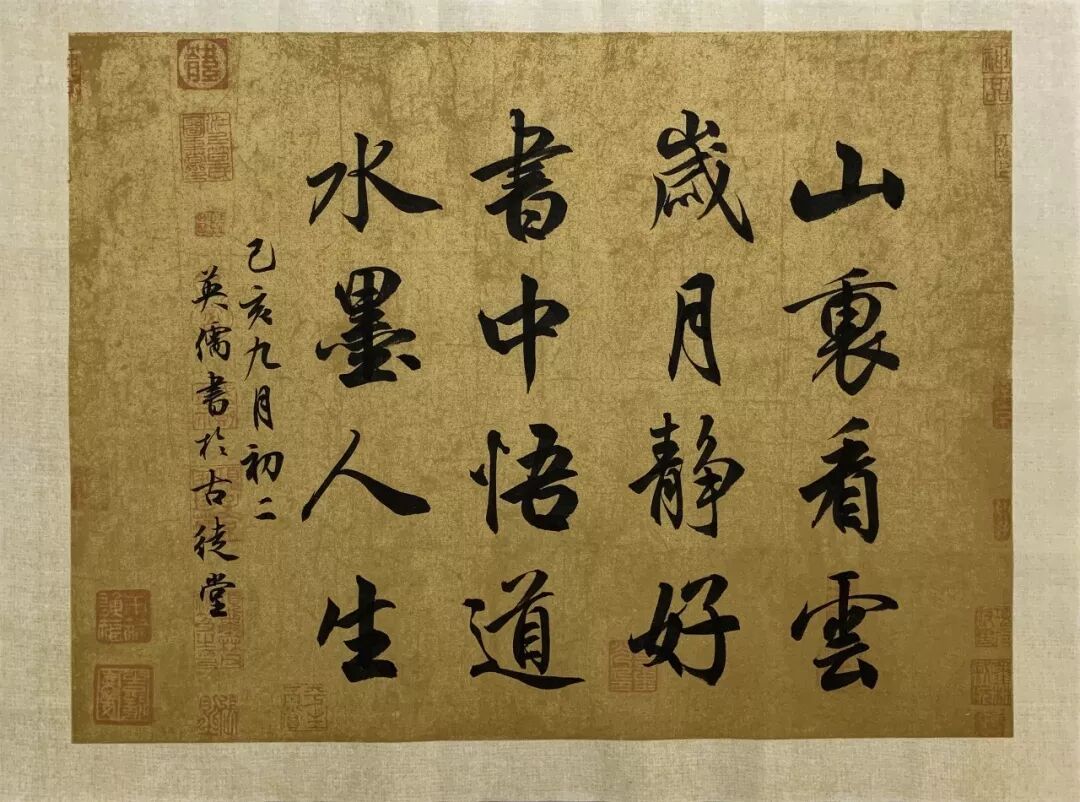 山裏看雲
歲月静好
書中悟道
水墨人生
己亥九月初二
英儒書於古徒堂
神品